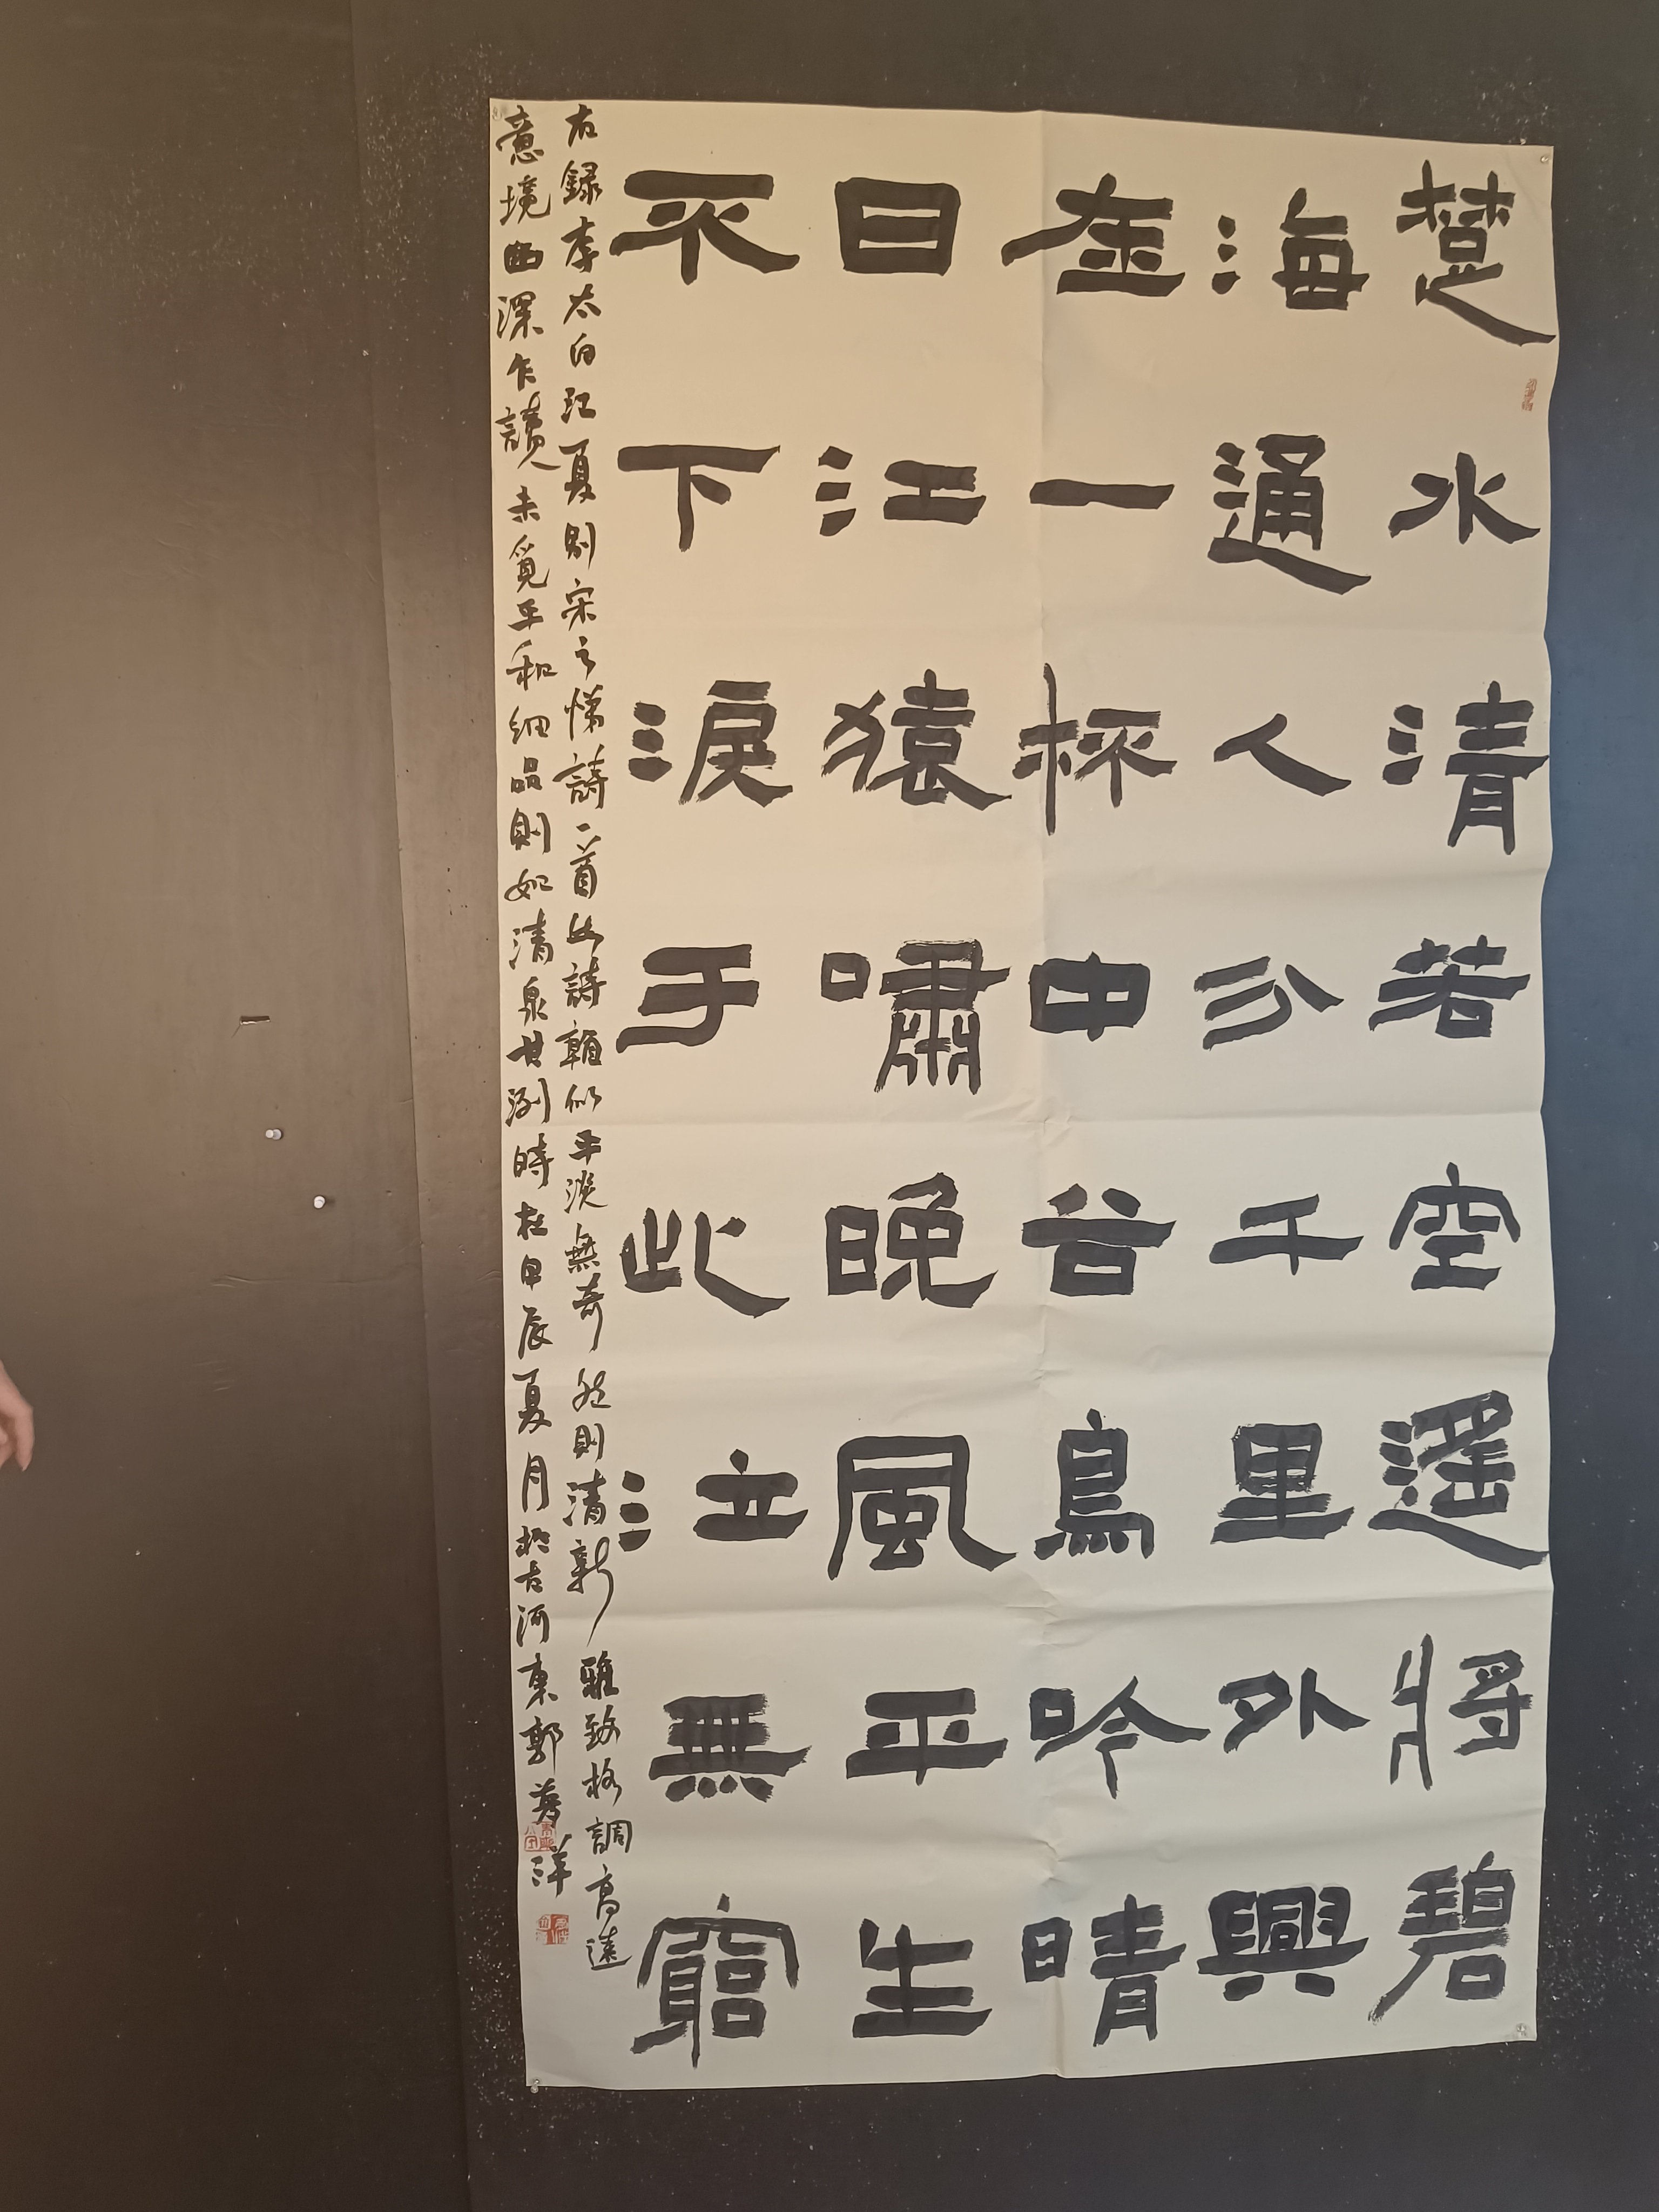 楚水清若空遙將碧
海通人分千里外興
在一杯中谷鳥吟晴
日江猿嘯晚風平生
不下淚于此泣無窮
右録李太白江夏別宋之悌詩一首此詩似平淡無奇然則清新雅致格調高遠
意境幽深乍讀未覓平和細品則如清泉甘洌時在甲辰夏月於古河東郭洋